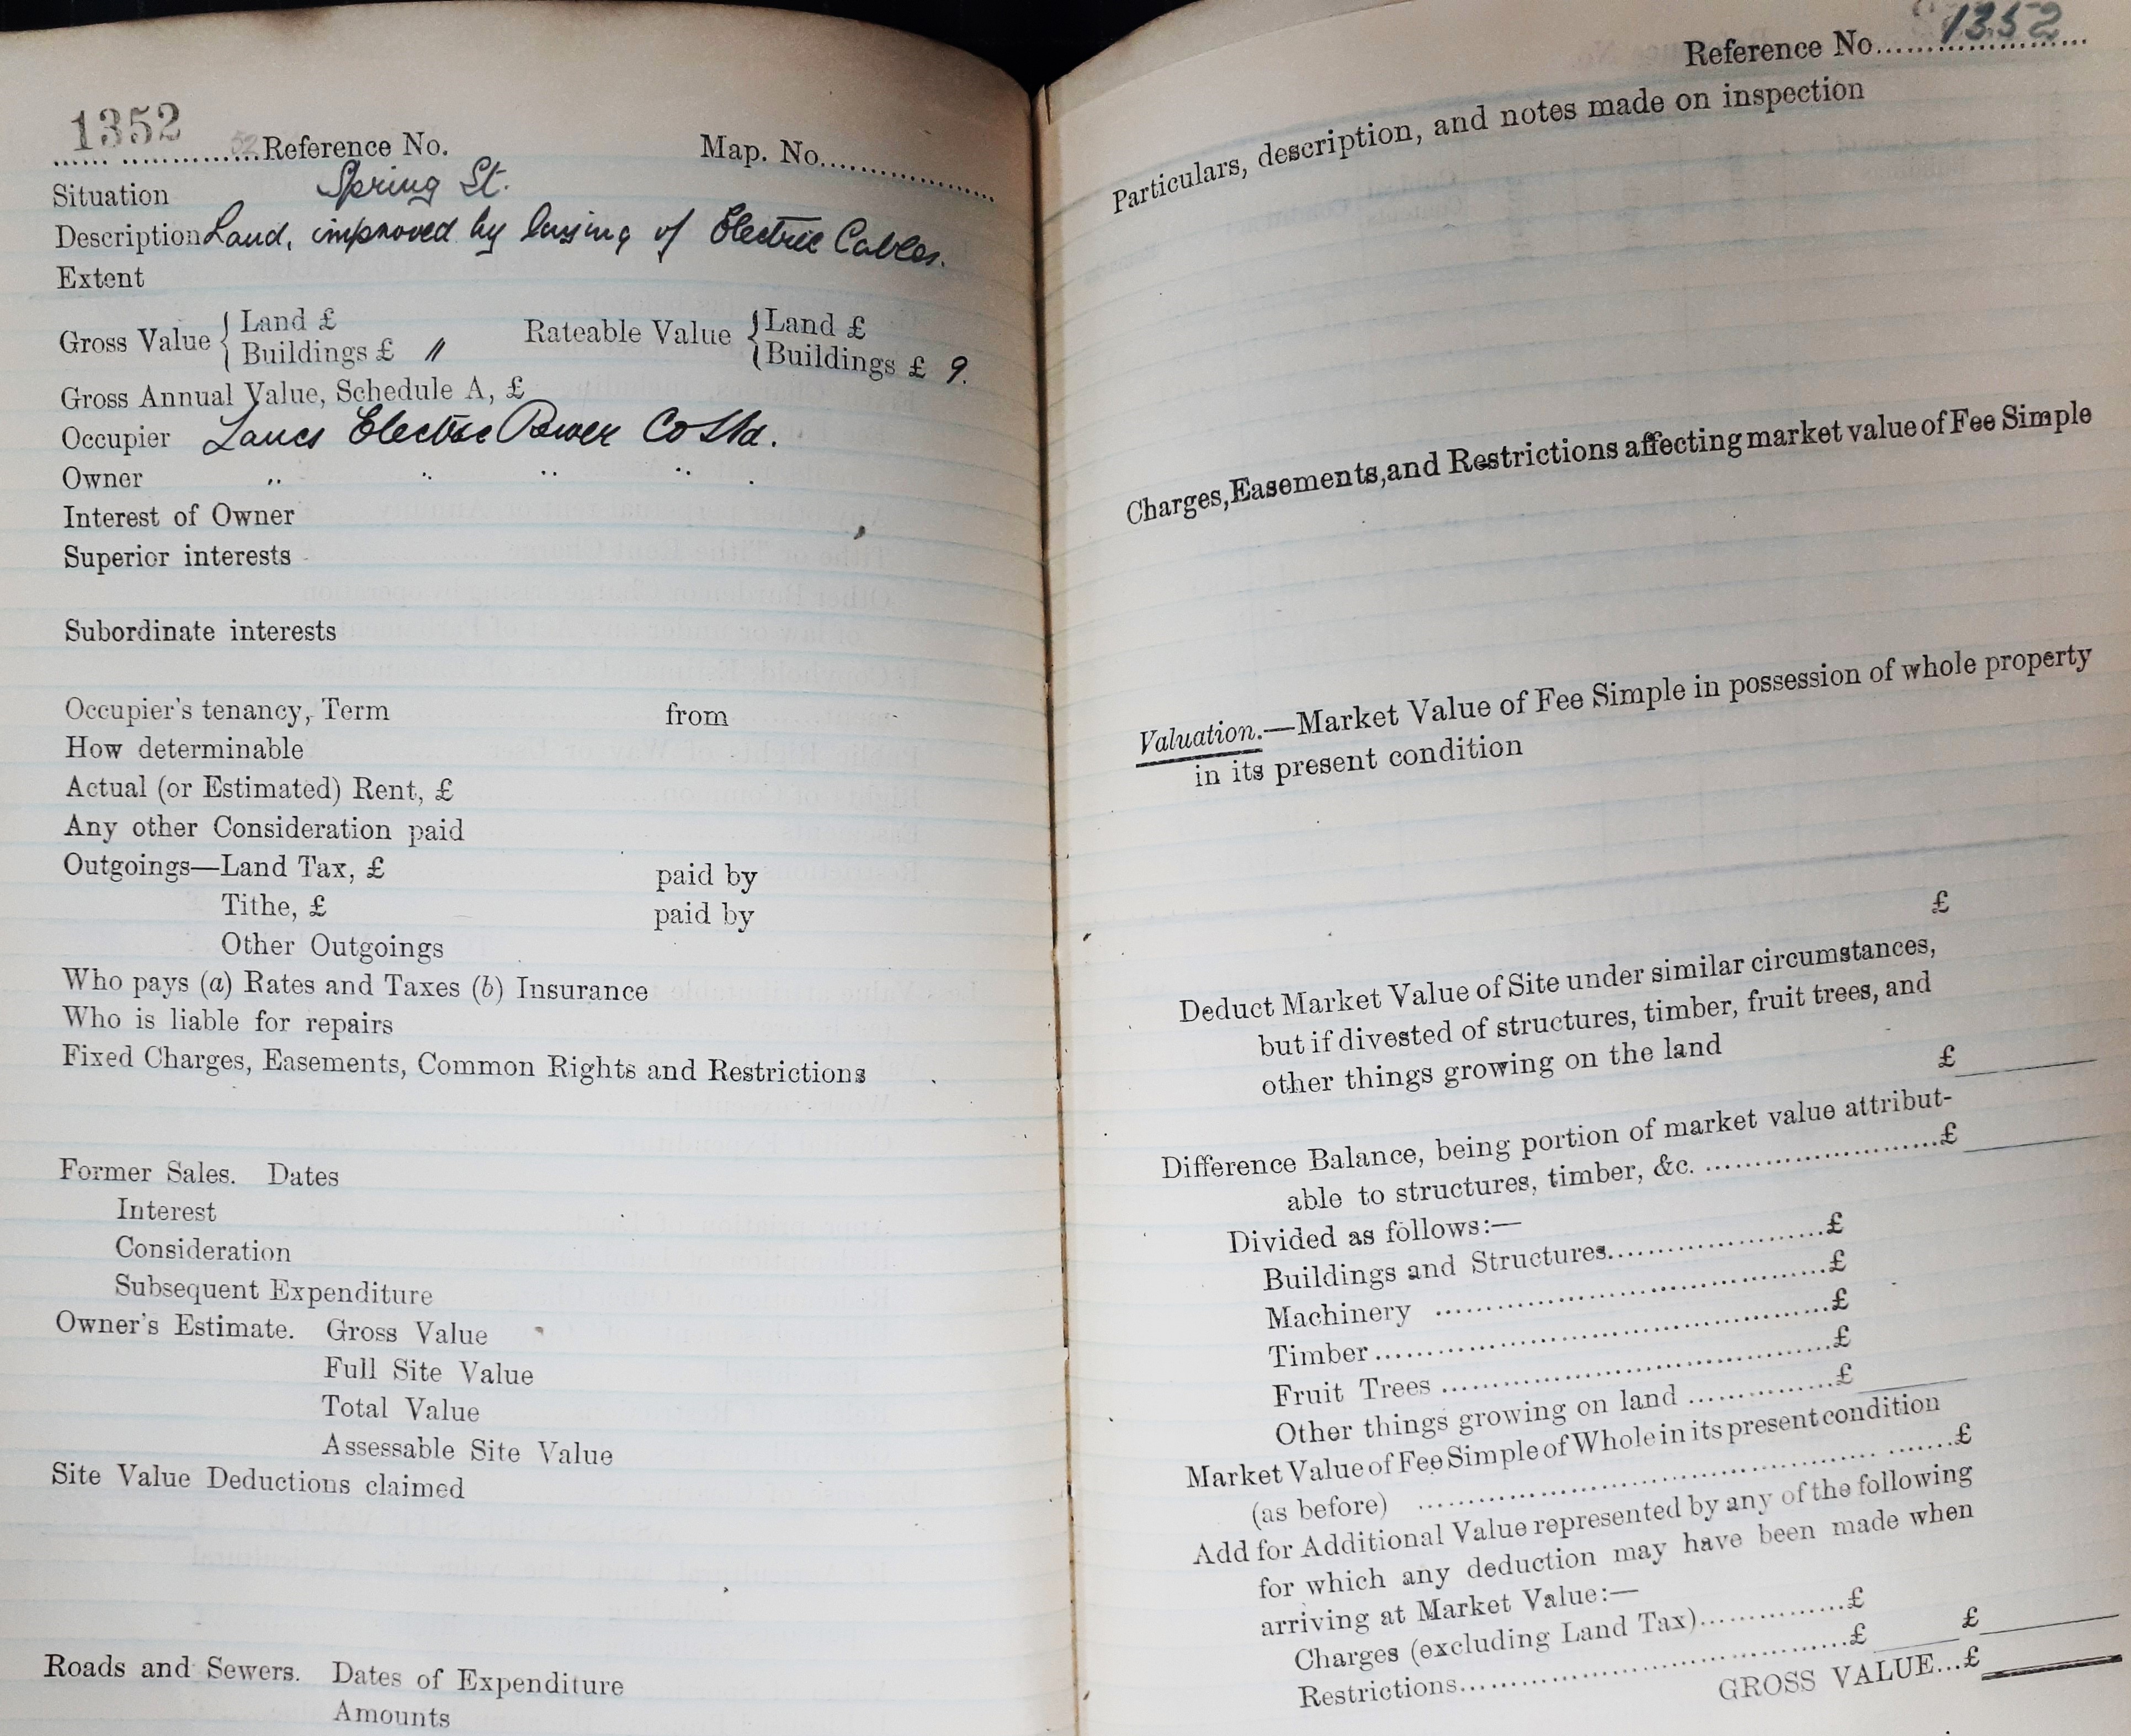 1352
52 Reference No. Map. No.
Situation Spring St.
Description Land, improved by laying of Electric Cables.
Extent
Gross Value { Land £ Rateable Value { Land £
Buildings £ 11 Buildings £ 9.
Gross Annual Value, Schedule A, £
Occupier Lancs Electric Power Co Ltd.
Owner " " " " .
Interest of Owner
Superior interests
Subordinate interests
Occupier's tenancy, Term from
How determinable
Actual (or Estimated) Rent, £
Any other Consideration paid
Outgoings—Land Tax, £ paid by
Tithe, £ paid by
Other Outgoings
Who pays (a) Rates and Taxes (b) Insurance
Who is liable for repairs
Fixed Charges, Easements, Common Rights and Restrictions
Former Sales. Dates
Interest
Consideration
Subsequent Expenditure
Owner's Estimate. Gross Value
Full Site Value
Total Value
Assessable Site Value
Site Value Deductions claimed
Roads and Sewers. Dates of Expenditure
Amounts
Reference No. 1352
Particulars, description, and notes made on inspection
Charges, Easements, and Restrictions affecting market value of Fee Simple
Valuation.—Market Value of Fee Simple in possession of whole property
in its present condition
£
Deduct Market Value of Site under similar circumstances,
but if divested of structures, timber, fruit trees, and
other things growing on the land £
Difference Balance, being portion of market value attribut-
able to structures, timber, &c. £
Divided as follows:—
Buildings and Structures £
Machinery £
Timber £
Fruit Trees £
Other things growing on land £
Market Value of Fee Simple of Whole in its present condition
(as before) £
Add for Additional Value represented by any of the following
for which any deduction may have been made when
arriving at Market Value:—
Charges (excluding Land Tax) £
Restrictions £ £
GROSS VALUE...£